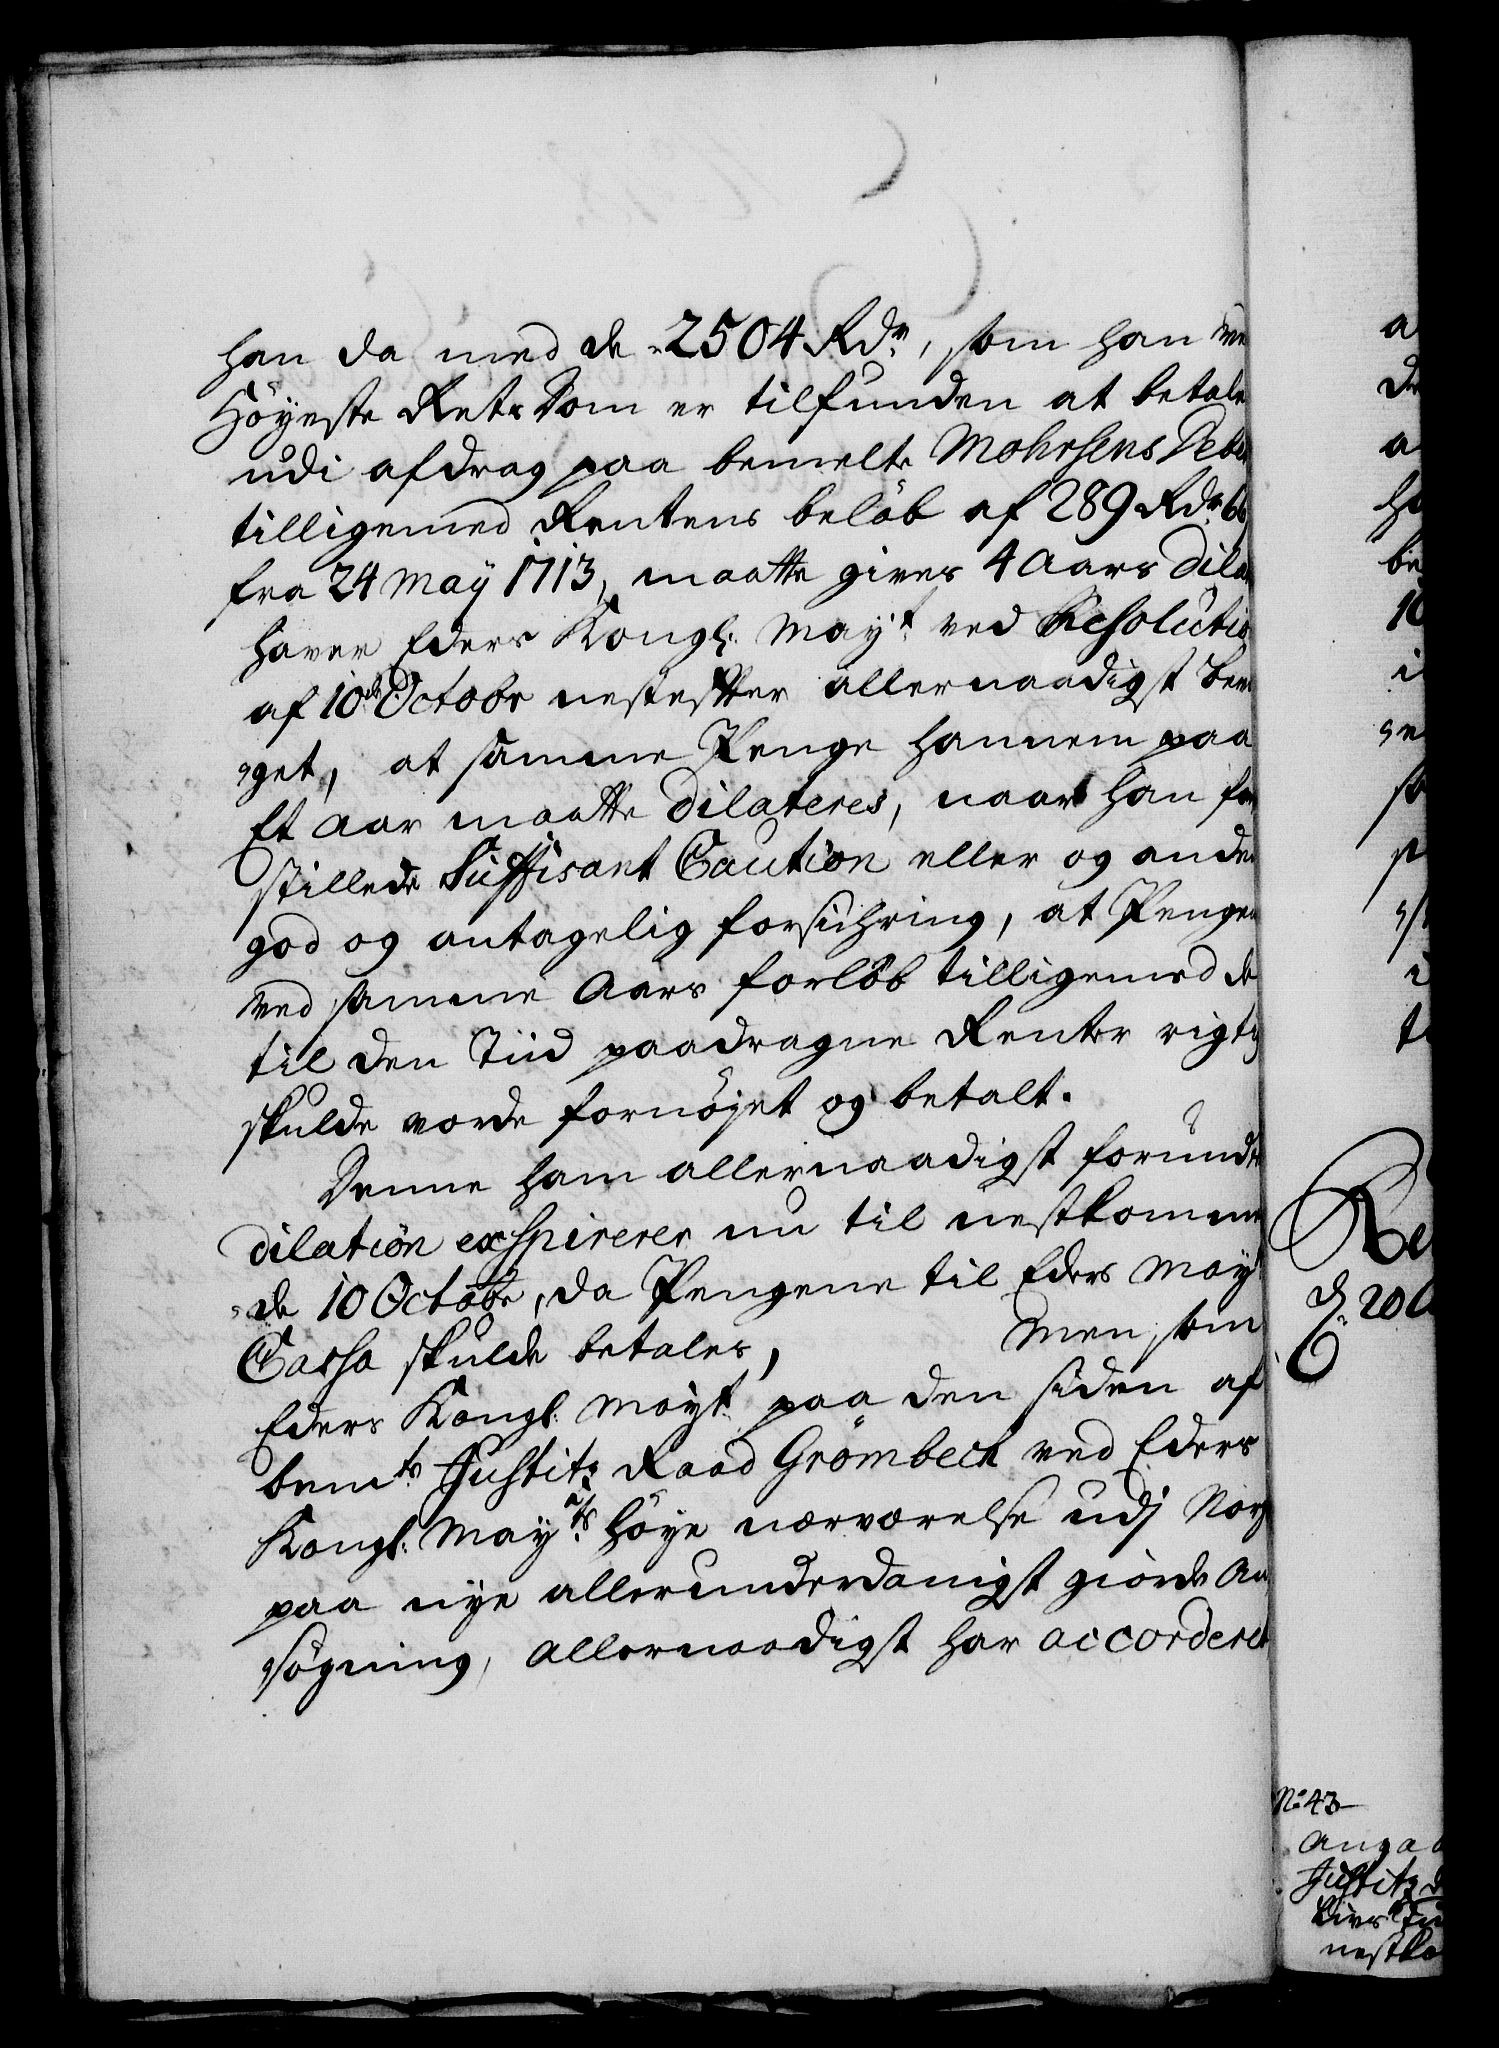 han da med de 2504 Rdr, som han ve
Höyeste Rets Dom er tilfunden at betale
udi afdrag paa bemelte Mohrsens Debet
tilligemed Rentens beløb af 289 Rdr 66
fra 24 May 1713, maatte gives 4 Aars Dila
haver Eders Kongl: Mayt ved Resolutio
af 10de Octobr nestefter allernaadigst bev
get, at samme Penge hannem paa
Et Aar maatte dilateres, naar han for
stillede Suffisant Caution eller og anden
god og antagelig forsichring, at Pengen
ved samme Aars forløb tilligemed de
til den Tiid paadragne Renter rigtig
skulde vorde fornøyet og betalt.
Denne ham allernaadigst forundte
dilation exspirerer nu til nestkommen
de 10 Octobr, da Pengene til Eders Mayt
Cassa skulde betales, Men, som
Eders Kongl: Mayt paa den siden af
bemte Justitz Raad Grömbech ved Eders
Kongl: Mayts höye nærværelse udj Norg
paa nye allerunderdanigst giorde An
søgning, allernaadigst har accorderet
Re
d. 20
No 43
Justitz
nestko